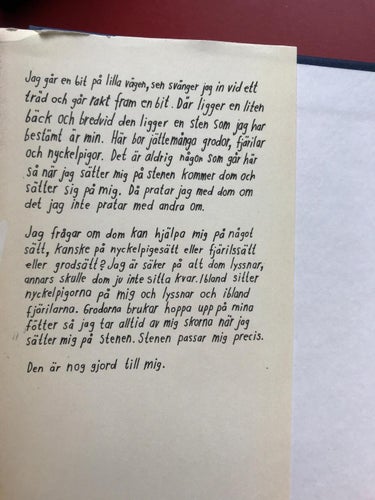 Jag går en bit på lilla vägen, sen svänger jag in vid ett
träd och går rakt fram en bit. Där ligger en liten
bäck och bredvid den ligger en sten som jag har
bestämt är min. Här bor jättemånga grodor, fjärilar
och nyckelpigor. Det är aldrig någon som går här
så när jag sätter mig på stenen kommer dom och
sätter sig på mig. Då pratar jag med dom om
det jag inte pratar med andra om.
Jag frågar om dom kan hjälpa mig på något
sätt, kanske på nyckelpigesätt eller fjärilssätt
eller grodsätt? Jag är säker på att dom lyssnar,
annars skulle dom ju inte sitta kvar. Ibland sitter
nyckelpigorna på mig och lyssnar och ibland
fjärilarna. Grodorna brukar hoppa upp på mina
fötter så jag tar alltid av mig skorna när jag
sätter mig på stenen. Stenen passar mig precis.
Den är nog gjord till mig.